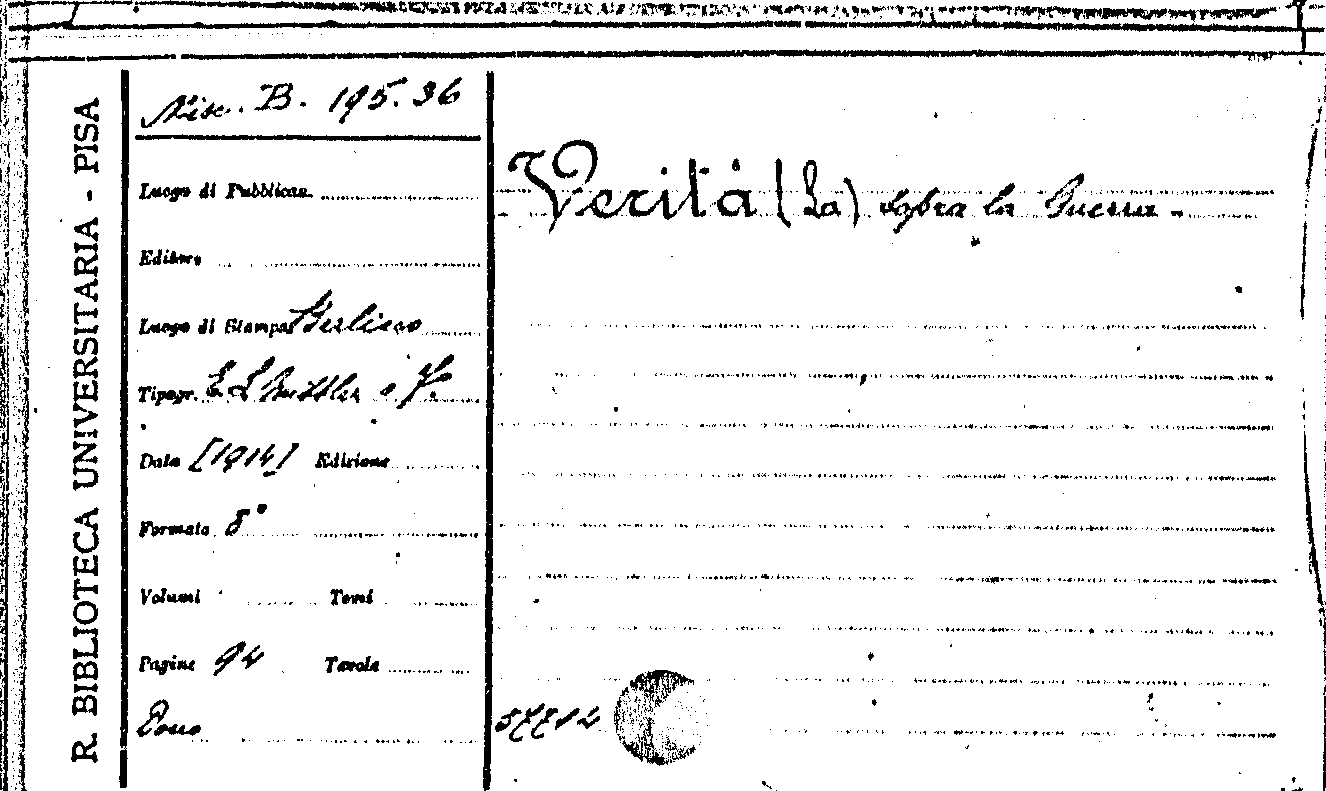 R. BIBLIOTECA UNIVERSITARIA - PISA
Misc. B. 195. 36
Luogo di Pubblicaz.
Editore
Luogo di Stampa Berlino
Tipogr. E. S. Mittler e F.
Data [1914] Edizione
Formato 8°
Volumi Tomi
Pagine 94 Tavole
Dono
Verità (La) sopra la Guerra -